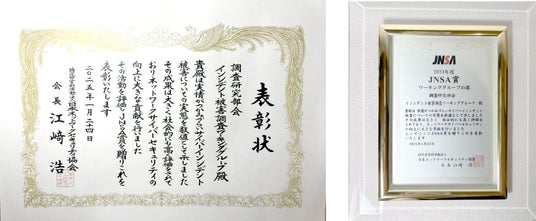 表彰状
調査研究部会
インシデント被害調査ワーキンググループ殿
貴殿は実情がつかみにくいサイバーインシデント
被害についての実態を数値として示しました
その成果は大きく社会的にも高評価を得て
おりネットワークサイバーセキュリティの
向上に大きな貢献を行いました
その活動を評価しJNSA賞を贈りこれを
表彰いたします
二〇二五年一月二四日
特定非営利活動法人日本ネットワークセキュリティ協会
会長 江﨑 浩
JNSA
2024年度
JNSA賞
ワーキンググループの部
調査研究部会
インシデント被害調査ワーキンググループ 殿
2025年1月24日
特定非営利活動法人
日本ネットワークセキュリティ協会
会長 江﨑 浩